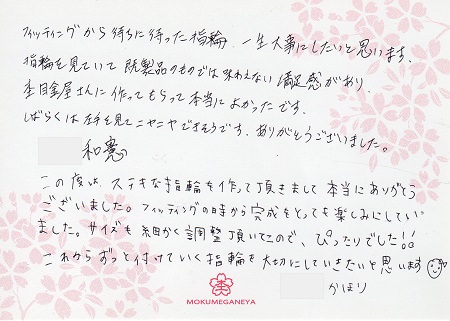 フィッティングから待ちに待った指輪、一生大事にしたいと思います。
指輪を見ていて既製品のものでは味わえない満足感があり、
杢目金屋さんに作ってもらって本当によかったです。
しばらくは左手を見てニヤニヤできそうです。ありがとうございました。
和憲
この度は、ステキな指輪を作って頂きまして本当にありがとう
ございました。フィッティングの時から完成をとっても楽しみにしてい
ました。サイズも細かく調整頂いたので、ぴったりでした!!
これからずっと付けていく指輪を大切にしていきたいと思います
かほり
MOKUMEGANEYA